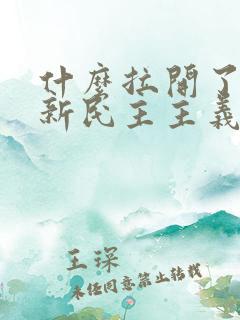 什麼拉開了
新民主主義
王琛
未经同意禁止转载